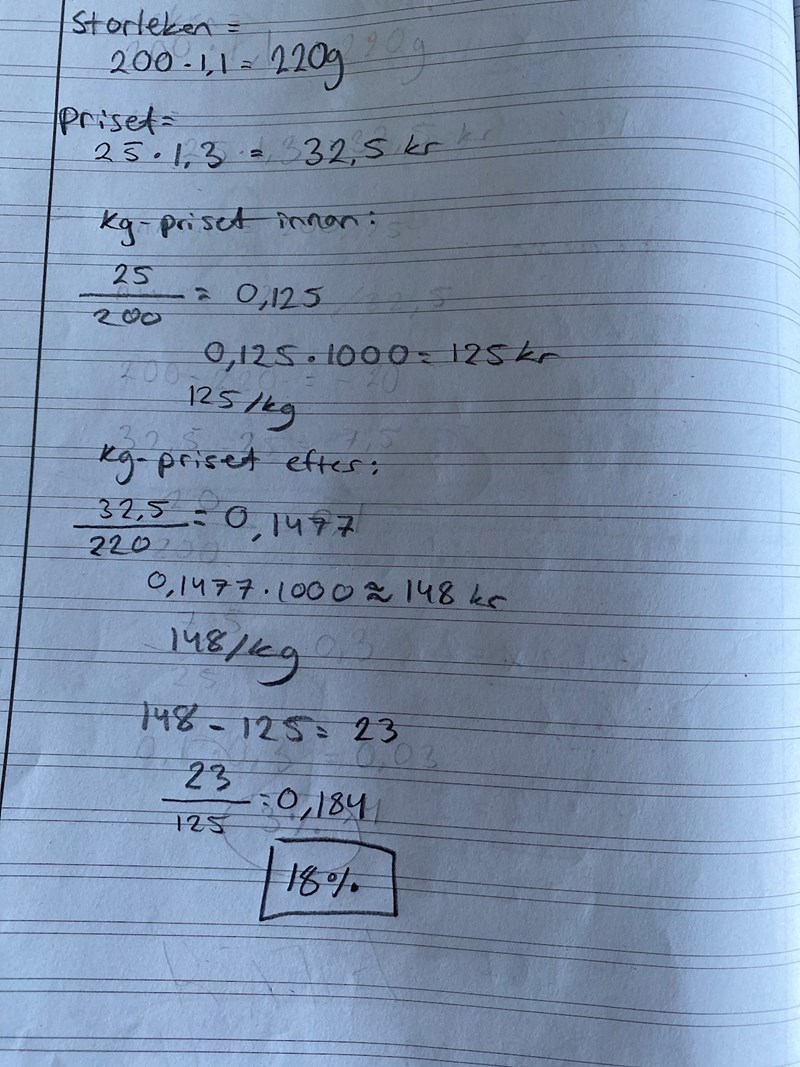 Storleken =
200 · 1,1 = 220g
Priset =
25 · 1,3 = 32,5 kr
Kg-priset innan:
25/200 = 0,125
0,125 · 1000 = 125 kr
125/kg
Kg-priset efter:
32,5/220 = 0,1477
0,1477 · 1000 ≈ 148 kr
148/kg
148 - 125 = 23
23/125 = 0,184
18%